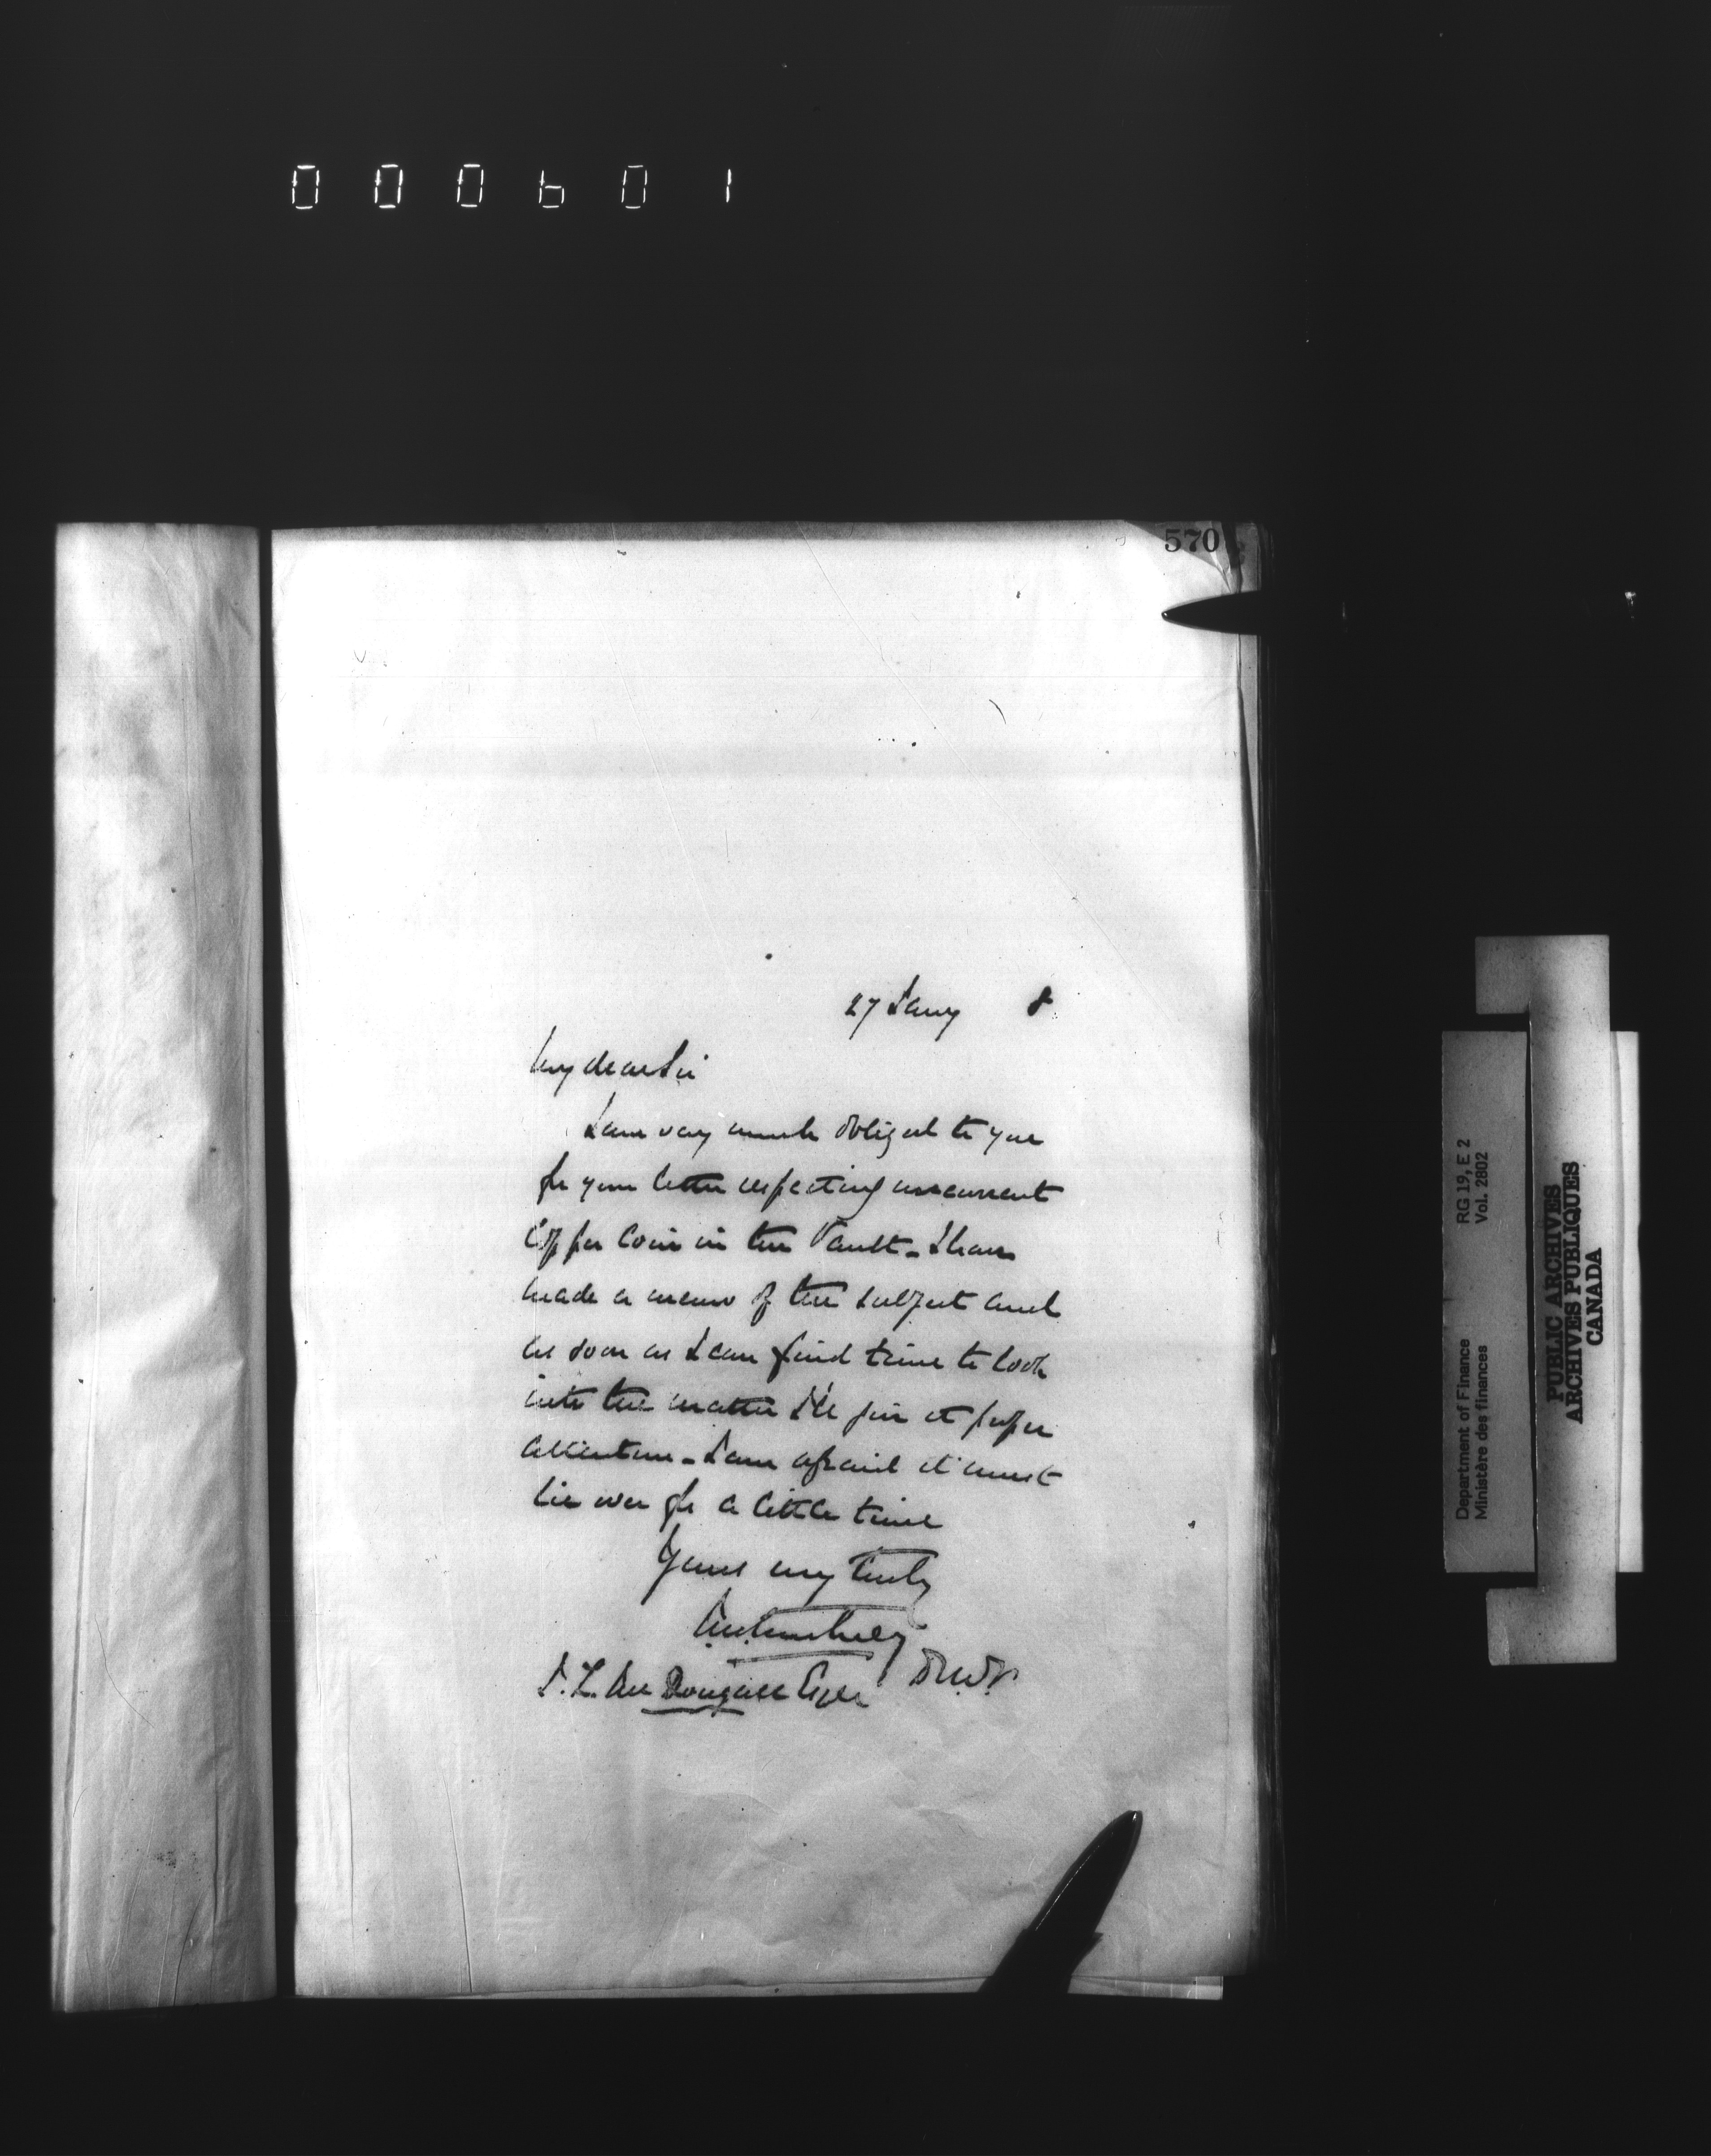 000601
570
27 Jany 8
My dear Sir
I am very much obliged to you
for your letter respecting uncurrent
Copper Coin in the Vault - I have
made a memo of the subject and
as soon as I can find time to look
into the matter I'll give it proper
attention - I am afraid it must
lie over for a little time
Yours very truly
J.M. Courtney
D.M.F.
Mc Dougall Esqre
Department of Finance RG 19, E 2
Ministère des finances Vol. 2802
PUBLIC ARCHIVES
ARCHIVES PUBLIQUES
CANADA